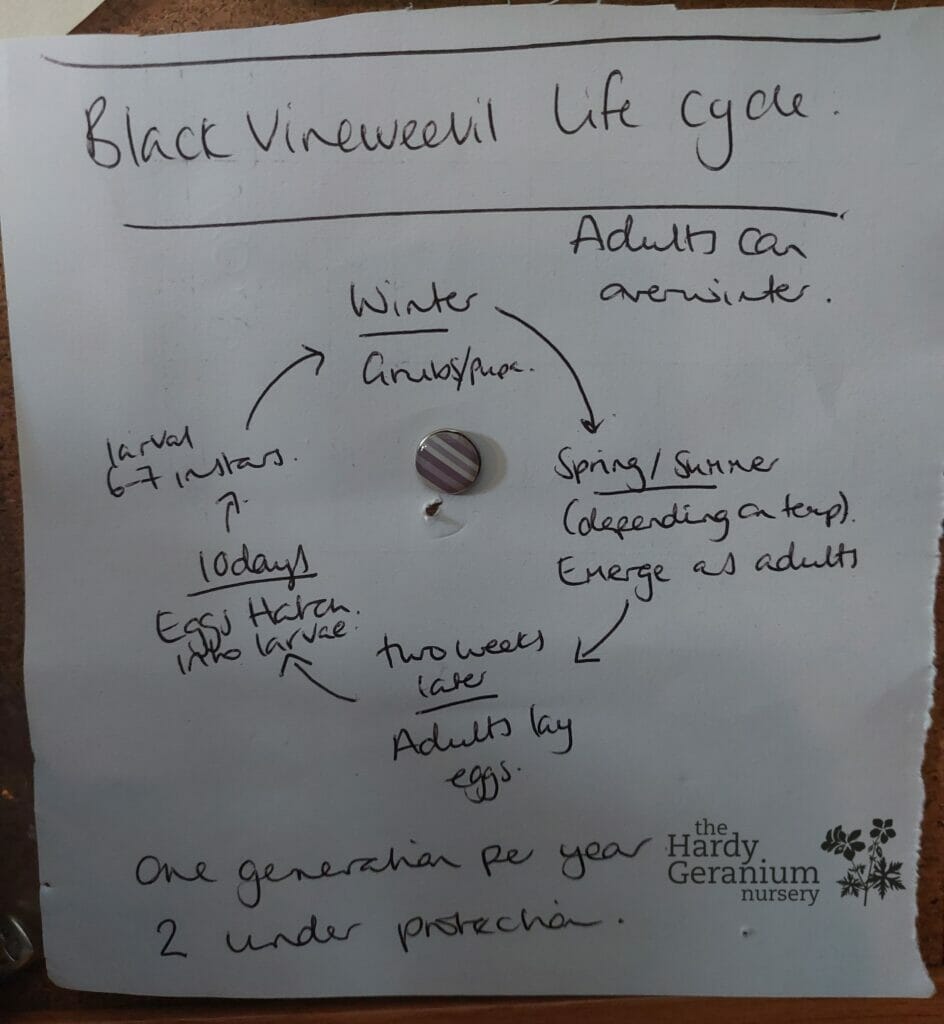 Black Vineweevil life cycle.
Adults can
overwinter.
Winter
Grubs/pupa.
Spring/Summer
(depending on temp).
Emerge as adults
two weeks
later
Adults lay
eggs.
10days
Eggs Hatch.
into larvae.
larval
6-7 instars.
One generation pe year
2 under protection.
the
Hardy
Geranium
nursery